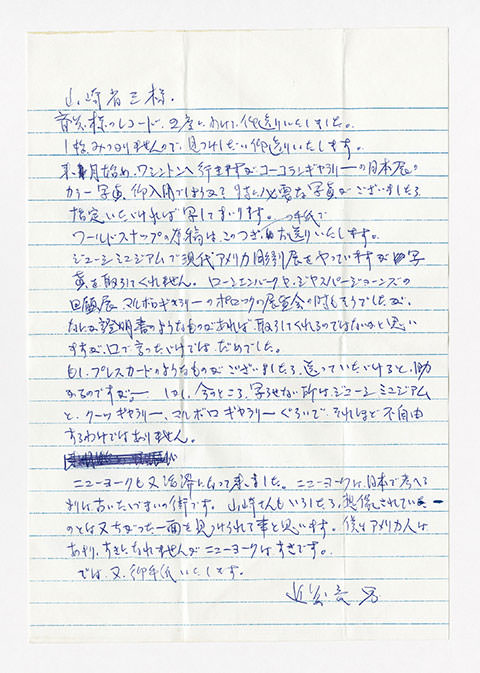 山崎省三様.
齋光様のレコード、2度にわけて、御送りいたしました。
1枚みつかりませんので、見つけしだい御送りいたします。
来月始め、ワシントンへ行きますがコーコランギャラリーの日本展の
カラー写真、御入用でしょうか? 特に必要な写真がございましたら
指定いただければ写してまいります。
ワールドスナップの原稿は、このつぎの手紙で御送りいたします。
ジューシミュジアムで現代アメリカ彫刻展をやっていますが写
真を取らしてくれません。ローシェンバーグや、ジャスパージョーンズの
回顧展、マルボロギャラリーのポロックの展覧会の時もそうでしたが、
なにか証明書のようなものがあれば取らしてくれるのではないかと思い
ますが、口で言っただけではだめでした。
もし、プレスカードのようなものがございましたら、送っていただけると、助
かるのですが。しかし、今のところ、写せない所は、ジューシミュジアム
と、クーツギャラリー、マルボロギャラリーぐらいで、それほど不自由
するわけではありません。
ニューヨークも又冷たくなって来ました。ニューヨークは、日本で考へる
より古いたたずまいの街です。山崎さんもいらしたら、想像されている
のとは又ちがった一面を見つけられる事と思います。僕はアメリカ人は
あまり、すきになれませんがニューヨークはすきです。
では、又、御手紙いたします。